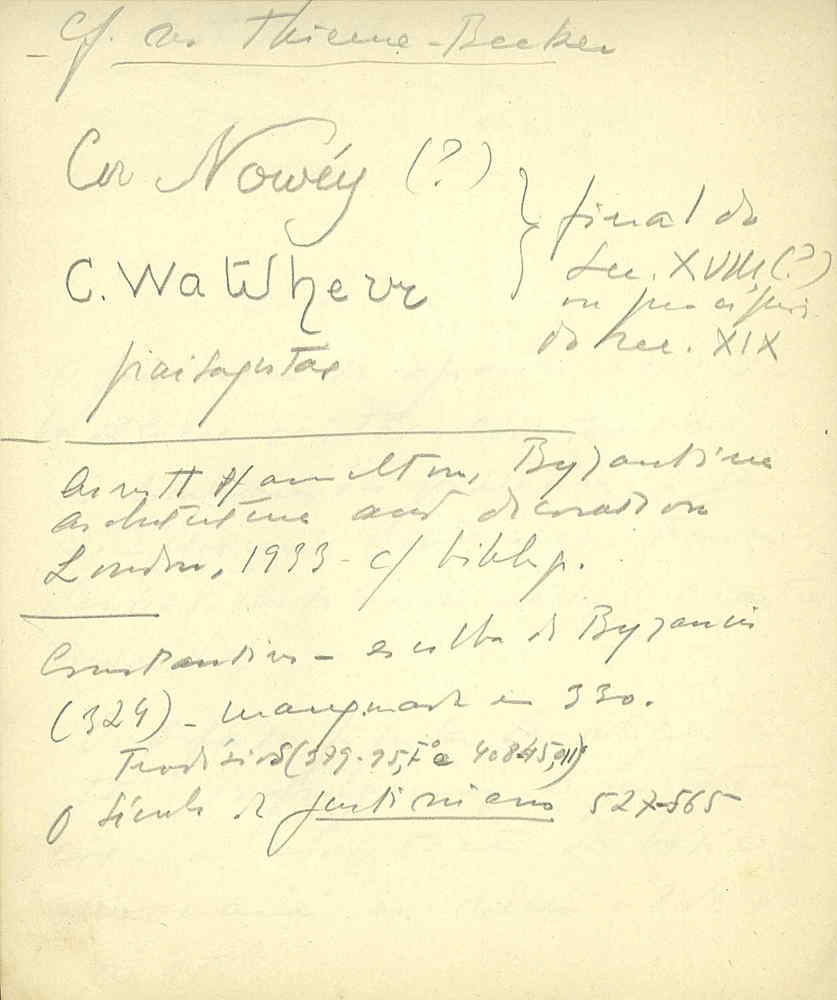 Cf. no Thieme-Becker
Cor Nowéy (?)
C. Watshevr
paisagistas
final do
sec. XVIII (?)
ou princípios
do sec. XIX
Hamilton, Byzantine
architecture and decoration
London, 1933 - c/ bibliogr.
Constantino - escolha de Byzancio
(324) - inaugurada em 330.
Teodósios (379-95, Iº e 408-45, II)
O século de Justiniano 527-565